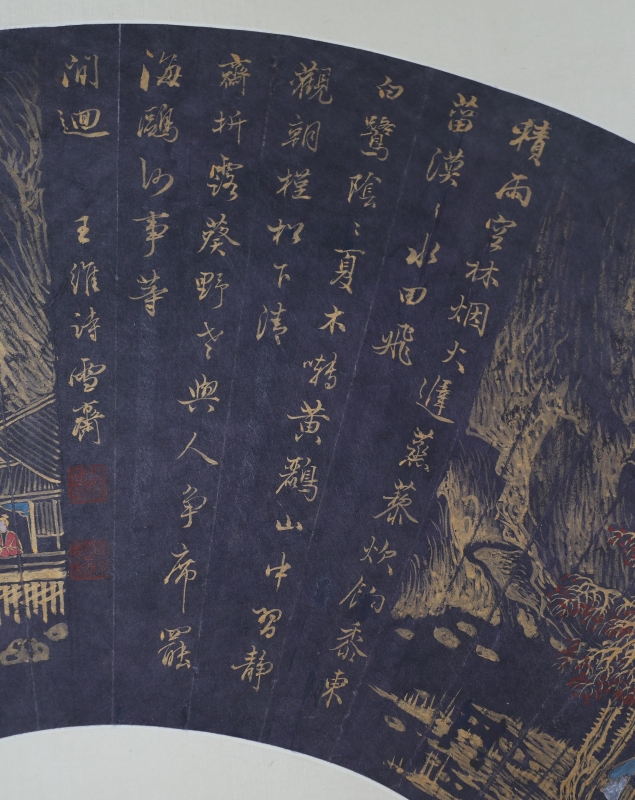 積雨空林烟火遲蒸藜炊餉黍東
菑漠〻水田飛
白鷺陰〻夏木囀黃鸝山中習靜
觀朝槿松下清
齋折露葵野老與人争席罷
海鷗何事等
閒迴 王維詩雪齋